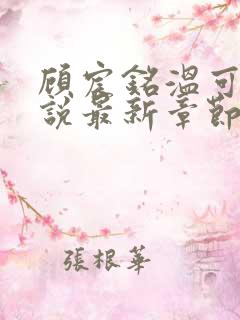 顾宸銘溫可
說最新章節
張根華